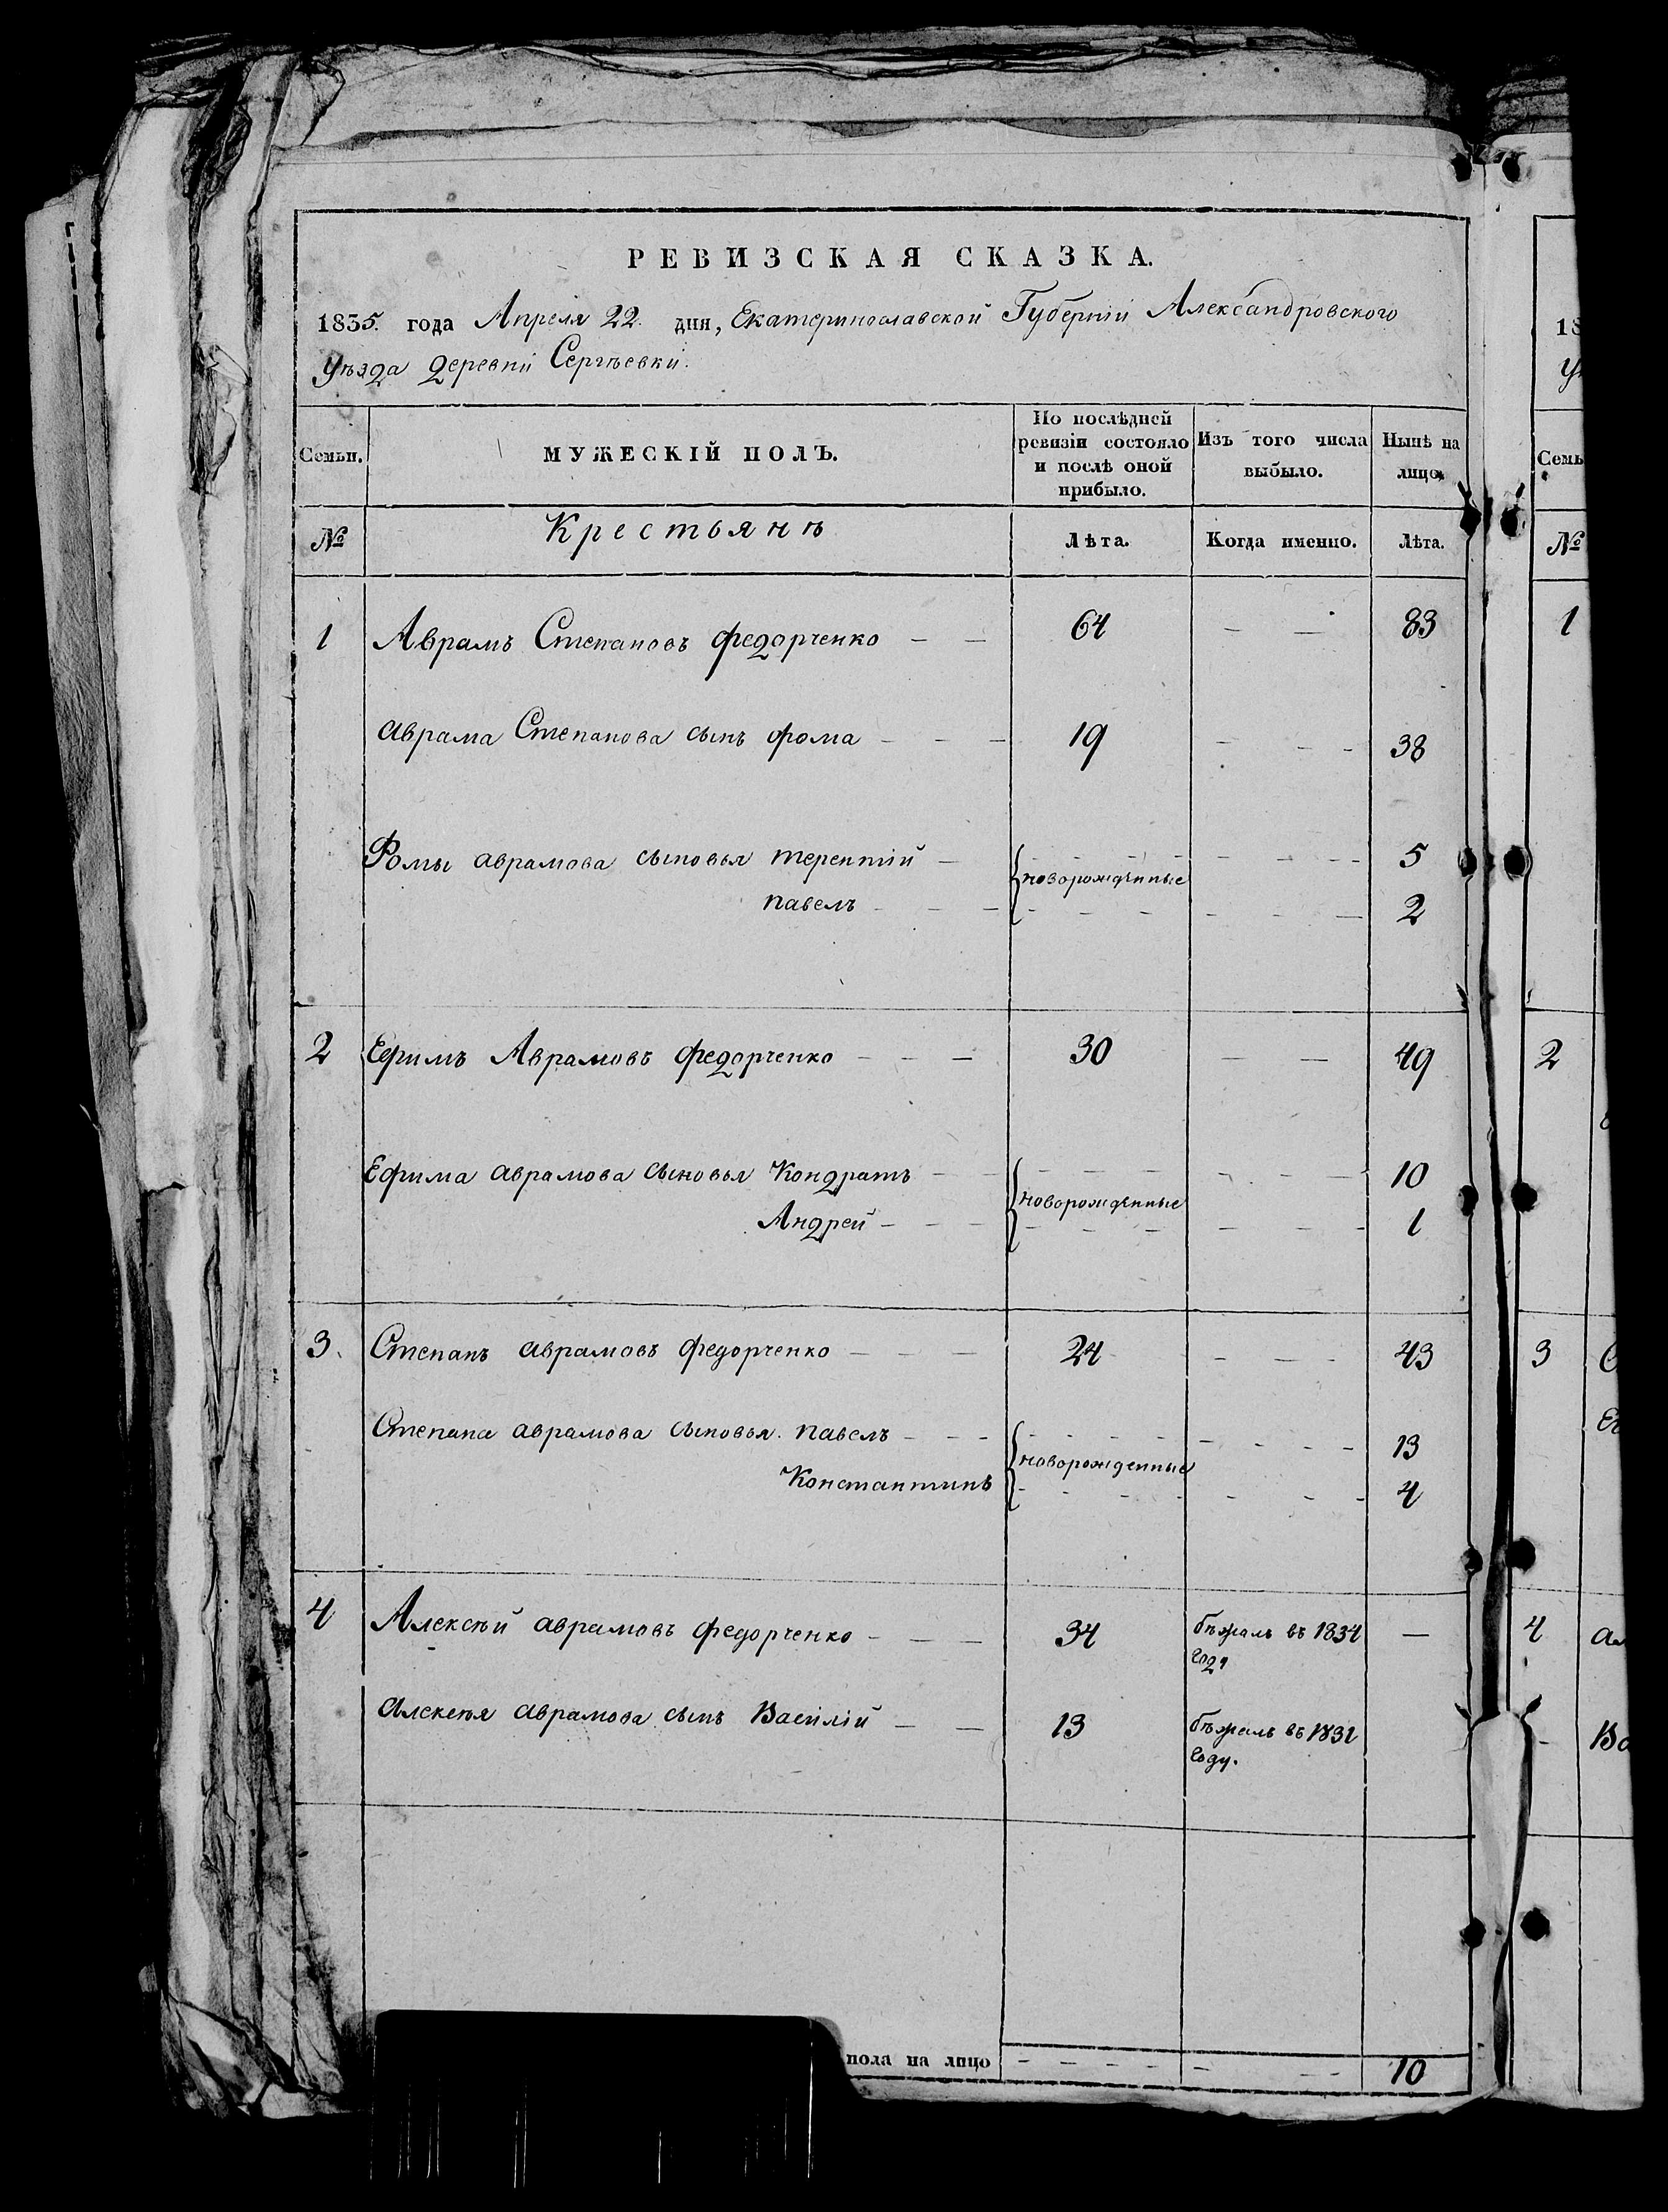 РЕВИЗСКАЯ СКАЗКА.
1835. года Апреля 22. дня, Екатеринославской Губерніи Александровского
Уѣзда деревни Сергѣевки.
Семьи.
МУЖЕСКІЙ ПОЛЪ.
По послѣдней
ревизіи состояло
и послѣ оной
прибыло.
Изъ того числа
выбыло.
Нынѣ на
лицо.
№
Крестьянѣ
Лѣта.
Когда именно.
Лѣта.
1 Аврамъ Степановъ федорченко — — 64 — — 83
аврама Степанова сынъ фома — — — 19 — — — 38
Фомы аврамова сыновья терентій — новорожденные — — — 5
павелъ — — — — — — 2
2 Ефимъ Аврамовъ федорченко — — — 30 — — 49
Ефима аврамова сыновья Кондратъ — — новорожденные — — — 10
Андрей — — — — — — 1
3. Степанъ аврамовъ федорченко — — — 24 — — — 43
Степана аврамова сыновья. павелъ — — — новорожденные — — — — 13
Константинъ — — — 4
4 Алексѣй аврамовъ федорченко — — — 34 бѣжалъ въ 1834 —
году
алексѣя аврамова сынъ Василій — — 13 бѣжалъ въ 1832
году.
пола на лицо — — — — — — — 10
18
Семь
№
1
2
3
4